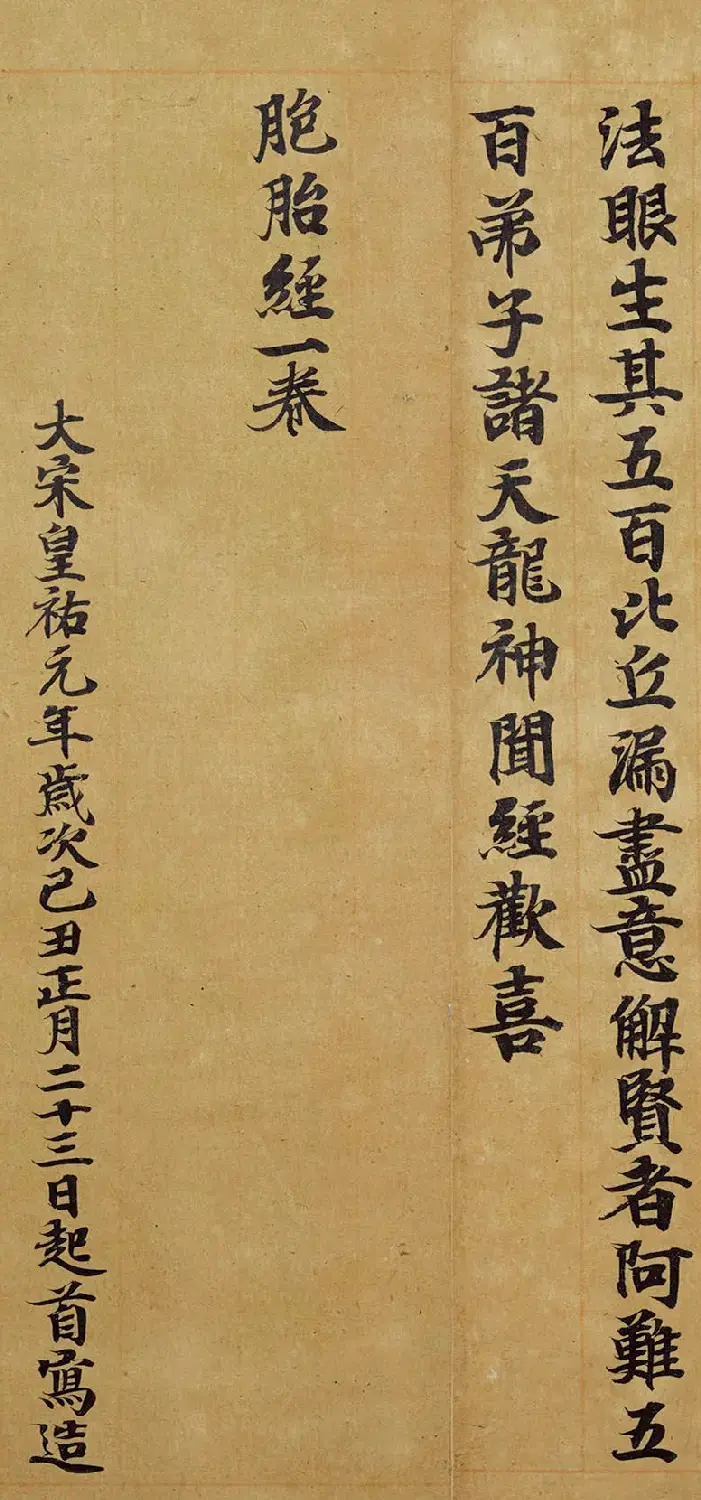 法眼生其五百比丘漏盡意解賢者阿難五
百弟子諸天龍神聞經歡喜
胞胎經一卷
大宋皇祐元年歲次己丑正月二十三日起首寫造